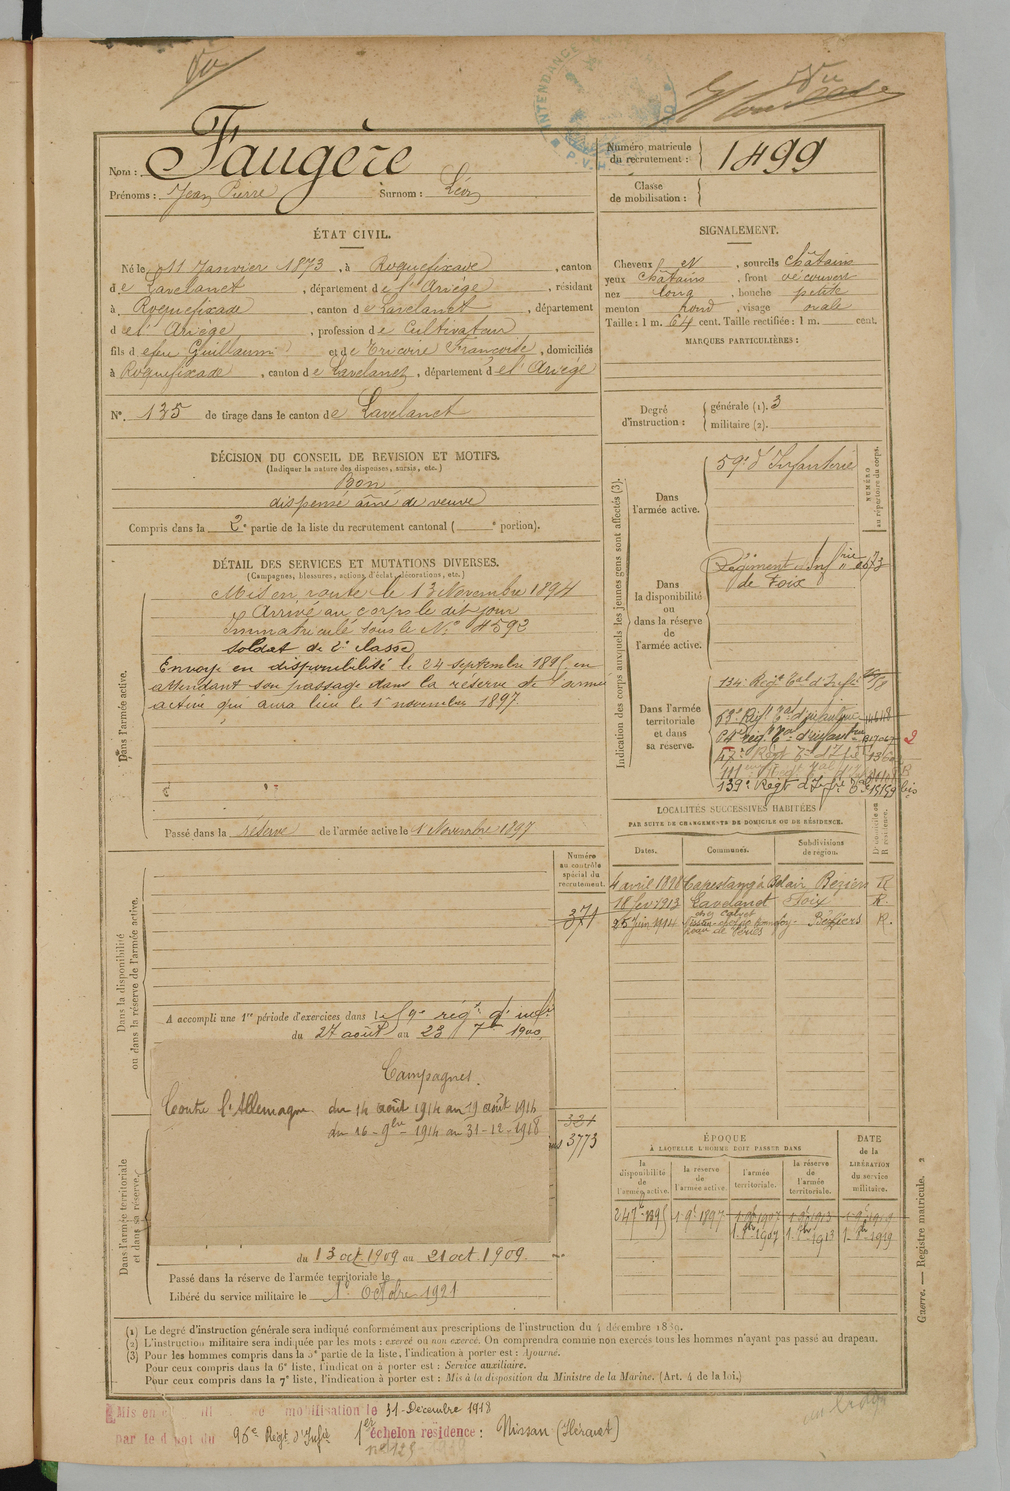 Vu
INTENDANCE
P.V.H.
Nom : Faugère
Prénoms : Jean Pierre Surnom : Léon
Numéro matricule du recrutement : 1499
Classe de mobilisation :
ÉTAT CIVIL.
Né le 11 Janvier 1873, à Roquefixade, canton
de Lavelanet, département de l'Ariège, résidant
à Roquefixade, canton de Lavelanet, département
de l'Ariège, profession de Cultivateur
fils de feu Guillaume et de Tricoire Françoise, domiciliés
à Roquefixade, canton de Lavelanet, département de l'Ariège
N° 135 de tirage dans le canton de Lavelanet
SIGNALEMENT.
Cheveux et N, sourcils châtains
yeux châtains, front découvert
nez long, bouche petite
menton rond, visage ovale
Taille : 1 m. 64 cent. Taille rectifiée : 1 m. cent.
MARQUES PARTICULIÈRES :
Degré d'instruction : générale (1). 3
militaire (2).
DÉCISION DU CONSEIL DE REVISION ET MOTIFS.
(Indiquer la nature des dispenses, sursis, etc.)
Bon
dispensé aîné de veuve
Compris dans la 2e partie de la liste du recrutement cantonal ( e portion).
DÉTAIL DES SERVICES ET MUTATIONS DIVERSES.
(Campagnes, blessures, actions d'éclat, décorations, etc.)
Dans l'armée active.
Mis en route le 13 Novembre 1894
Arrivé au corps le dit jour
Immatriculé sous le N° 4592
soldat de 2e classe
Envoyé en disponibilité le 24 septembre 1895 en
attendant son passage dans la réserve de l'armée
active qui aura lieu le 1er novembre 1897.
Passé dans la réserve de l'armée active le 1 Novembre 1897
Indication des corps auxquels les jeunes gens sont affectés (3).
NUMÉRO au répertoire du corps.
Dans l'armée active.
59e d'Infanterie
Dans la disponibilité ou dans la réserve de l'armée active.
Régiment d'Infrie 2673
de Foix
Dans l'armée territoriale et dans sa réserve.
134e Régt Tal d'Infie
63e Régt Tal d'infanterie 14618
64e régt Tal d'infantrie 2
Régt Tal d'Ifie
139e Régt d'Ifie Tale 15159 bis
LOCALITÉS SUCCESSIVES HABITÉES
PAR SUITE DE CHANGEMENTS DE DOMICILE OU DE RÉSIDENCE.
Dates. Communes. Subdivisions de région. D. domicile ou R. résidence.
4 avril 1898 Capestang à Belair Béziers R
18 fev 1913 Lavelanet Foix R.
25 juin 1914 Nissan chez Calvet Béziers R.
Dans la disponibilité ou dans la réserve de l'armée active.
Numéro au contrôle spécial du recrutement.
371
A accompli une 1re période d'exercices dans le 59e régt d'infie
du 27 août au 23 7bre 1900.
Campagnes.
Contre l'Allemagne du 14 août 1914 au 19 août 1914
du 16 - 9bre - 1914 au 31-12-1918
Dans l'armée territoriale et dans sa réserve.
321
3773
du 13 oct 1909 au 21 oct. 1909.
Passé dans la réserve de l'armée territoriale le
Libéré du service militaire le 1er Octobre 1921
ÉPOQUE À LAQUELLE L'HOMME DOIT PASSER DANS
DATE de la LIBÉRATION du service militaire.
la disponibilité de l'armée active. la réserve de l'armée active. l'armée territoriale. la réserve de l'armée territoriale.
24 7bre 1895 1 9bre 1897 1 9bre 1907 1 9bre 1913 1 9bre 1919
1. 8bre 1907 1. 8bre 1913 1. 8bre 1919
(1) Le degré d'instruction générale sera indiqué conformément aux prescriptions de l'instruction du 4 décembre 1889.
(2) L'instruction militaire sera indiquée par les mots : exercé ou non exercé. On comprendra comme non exercés tous les hommes n'ayant pas passé au drapeau.
(3) Pour les hommes compris dans la 5e partie de la liste, l'indication à porter est : Ajourné.
Pour ceux compris dans la 6e liste, l'indication à porter est : Service auxiliaire.
Pour ceux compris dans la 7e liste, l'indication à porter est : Mis à la disposition du Ministre de la Marine. (Art. 4 de la loi.)
Guerre. — Registre matricule. 2
Mis en mobilisation le 31-Décembre 1918
par le dépôt du 96e Régt d'Infie 1er échelon résidence : Nissan (Hérault)